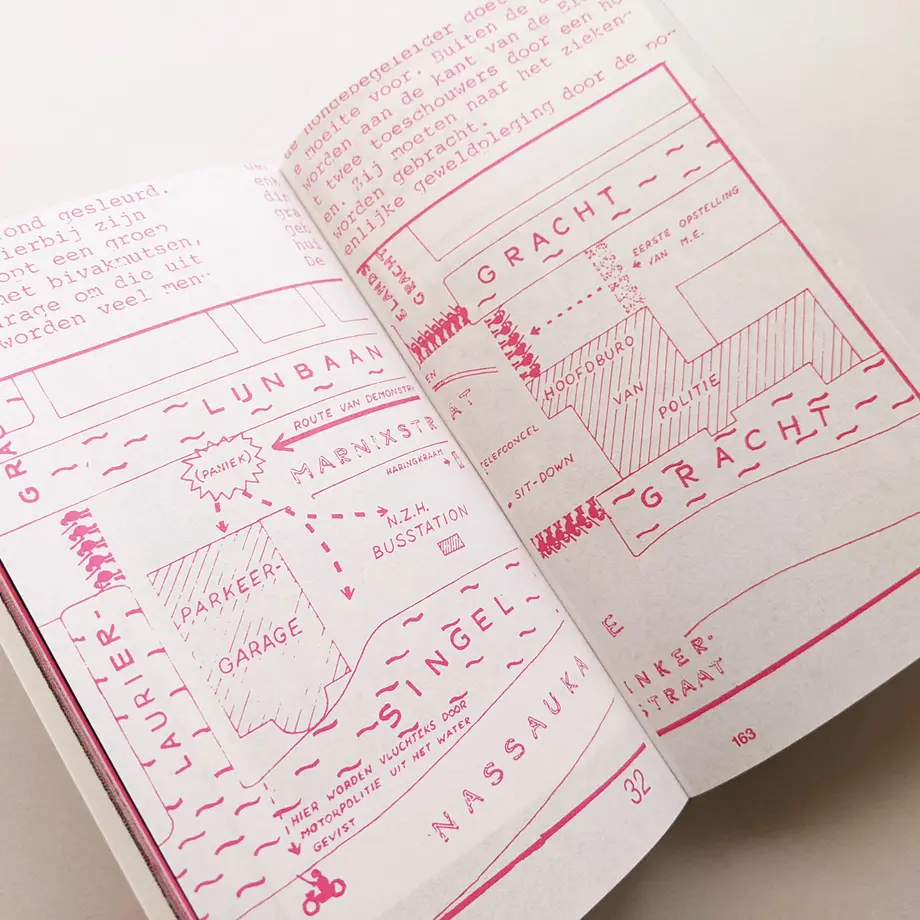 ond gesleurd.
ierbij zijn
ont een groen
met bivakmutsen,
arage om die uit
worden veel men-
GRA
LIJNBAAN
ROUTE VAN DEMONSTR
(PANIEK)
MARNIXSTR
HARINGKRAAM
N.Z.H.
BUSSTATION
PARKEER-
GARAGE
LAURIER-
SINGEL
NASSAUKA
HIER WORDEN VLUCHTELS DOOR
MOTORPOLITIE UIT HET WATER
GEVIST
32
ondebegeleider doet
e moeite voor. Buiten de
worden aan de kant van de
t twee toeschouwers door een ho
en. Zij moeten naar het zieken-
worden gebracht.
enlijke geweldpleging door de po-
GRACHT
ELANDS
GRACHT
EERSTE OPSTELLING
VAN M.E.
HOOFDBURO
VAN
POLITIE
EN
AT
TELEFOONCEL
SIT-DOWN
GRACHT
E
INKER-
STRAAT
163